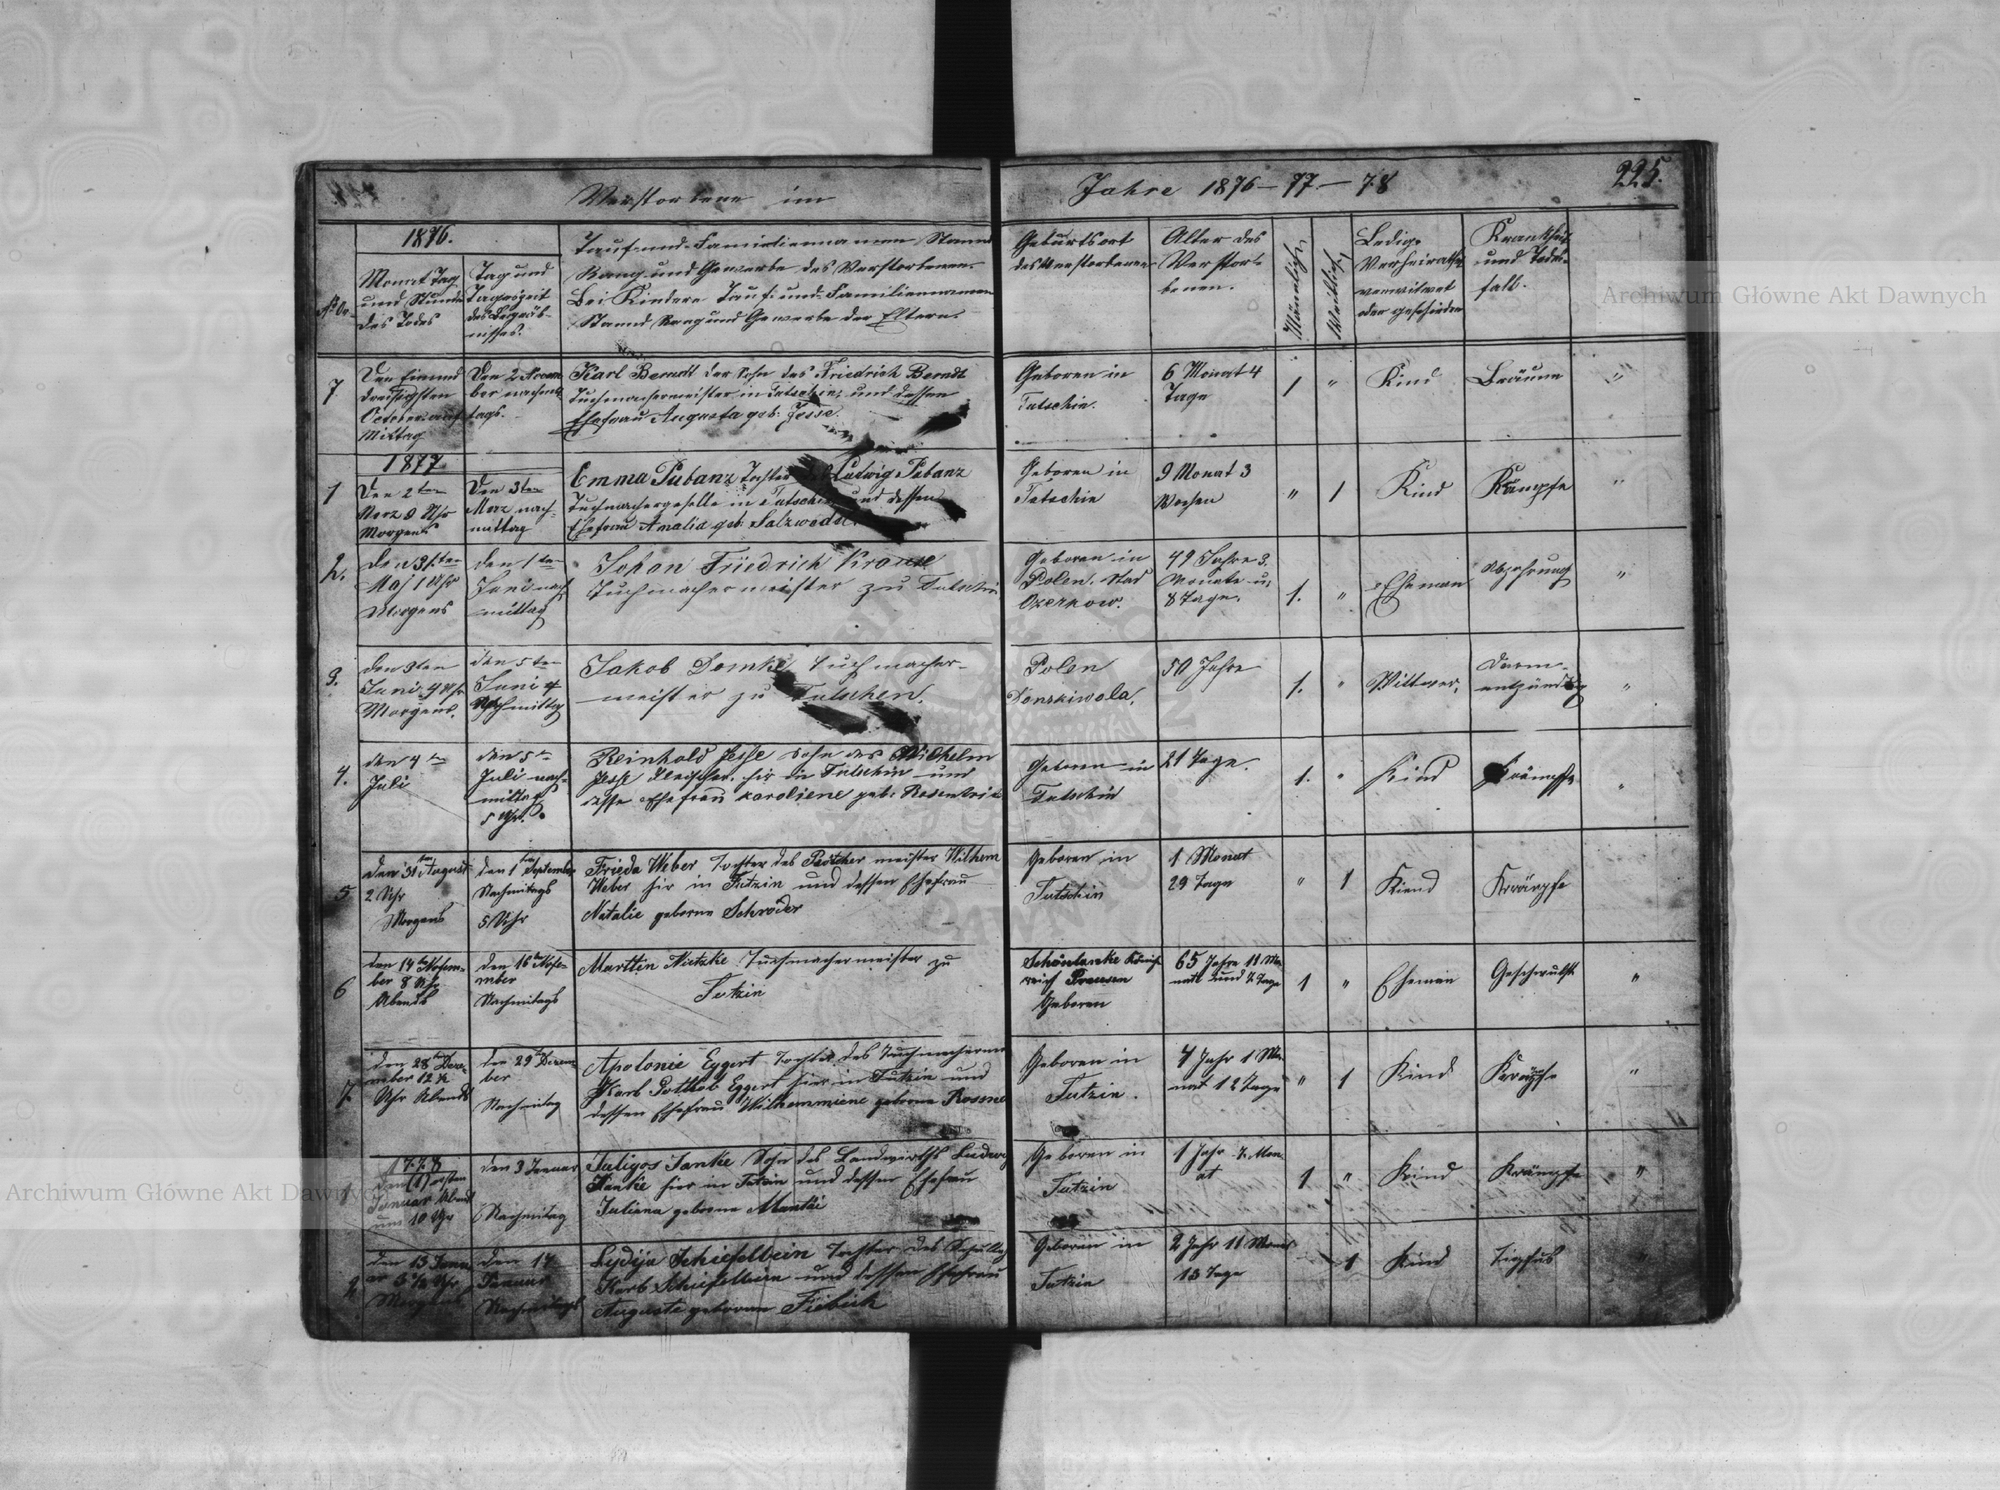 225.
Verstorbene im
Jahre 1876 – 77 – 78
1876.
No Or
Monat Tag
und Stunde
des Todes
Tag und
Tageszeit
des Begräb-
nisses.
Tauf- und Familiennamen Stand
Rang und Gewerbe des Verstorbenen.
Bei Kindern Tauf- und Familiennamen
Stannd Rang und Gewerbe der Eltern.
Geburtsort
des Verstorbenen
Alter des
Verstor-
benen.
Männlich.
Weiblich.
Ledig.
Verheirathet
verwitwet
oder geschieden
Krankheit
und Todes-
fall.
7
Den Einund
dreisigsten
October auf
Mittag
Den 2 Novem
ber nachmit
tags.
Karl Berndt der Sohn des Friedrich Berndt
Tuchmachermeister in Tutschin, und dessen
Ehefrau Augusta geb: Jesse.
Geboren in
Tutschin.
6 Monat 4
Tage
1
"
Kind
Bräune
"
1877
1
Den 2ten
Merz 9 Uhr
Morgens
Den 3ten
Merz nach-
mittag
Emma Pubanz Tochter Ludwig Pubanz
Tuchmachergeselle in Tutschin und dessen
Ehefrau Amalia geb: Salzwedel
Geboren in
Tutschin
9 Monat 3
Wochen
"
1
Kind
Kämpfe
"
2.
den 31ten
Maj 1 Uhr
Morgens
den 1ten
Juni nach
mittag
Johan Friedrich Krause
Tuchmachermeister zu Tutschin
Geboren in
Polen. Stad
Ozerkow.
49 Jahre 3.
Monate u.
8 Tage.
1.
"
Eheman
Abzehrung
"
3.
den 3ten
Juni 4 Uhr
Morgens.
den 5ten
Juni 4
Nachmittag
Jakob Domke Tuchmacher-
meister zu Tutschen.
Polen
Donskiwola.
50 Jahre
1.
"
Wittwer.
Darm-
entzündung
"
4.
den 4ten
Juli
den 5ten
Juli nach-
mittag
5 Uhr.
Reinhold Jesse Sohn des Wilhelm
Jesse Fleischer. hir in Tutschin und
desse Ehefrau karoliene geb:
Geboren in
Tutschin
21 Tage.
1.
"
Kind
Krämpfe
"
5
den 31ten August
2 Uhr
Morgens
den 1ten September
Nachmitags
5 Uhr
Frieda Weber, Tochter des meister Wilhem
Weber hir in Tutzin und dessen Ehefrau
Natalie geborne Schröder
Geboren in
Tutschin
1 Monat
29 Tage
"
1
Kiend
Krämpfe
6
den 14ten Nofem-
ber 8 Uhr
Abends
den 16ten Nofe-
mber
Nachmitags
Marttin Nietzke Tuchmachermeister zu
Tutzin
Schönlanke König
reich Preusen
Geboren
65 Jahre 11 Mo
nate und 2 Tage
1
"
Eheman
Geschwulst
"
7.
den 28ten Deze-
mber 12 ½
Uhr Abends
den 29ten Dezem
ber
Nachmitag
Apolonie Eggert Tochter des Tuchmacherm
Karl Gottlob Eggert hier in Tutzin und
dessen Ehefrau Wilhemmiene geborne
Geboren in
Tutzin.
4 Jahr 1 Mo-
nat 12 Tage
"
1
Kind
Krämpfe
"
1878
1
den (1) ersten
Januar Abend
um 10 Uhr
den 3 Januar
Nachmitag
Juligos Janke Sohn des Landwirths Ludwig
Janke hier in Tutzin und dessen Ehefrau
Juliana geborne Mantei
Geboren in
Tutzin
1 Jahr 7. Mon
at
1
"
Kind
Krämpfe
"
2
den 13 Janu
ar 5 ½ Uhr
Morgens
den 14
Januar
Nachmitags
Lydija Schiefelbein Tochter des
Karl Schiefelbein und dessen Ehefrau
Auguste geboren
Geboren in
Tutzin
2 Jahr 11 Monat
13 Tage
1
Kind
Tiphus
"
Archiwum Główne Akt Dawnych
Archiwum Główne Akt Dawnych